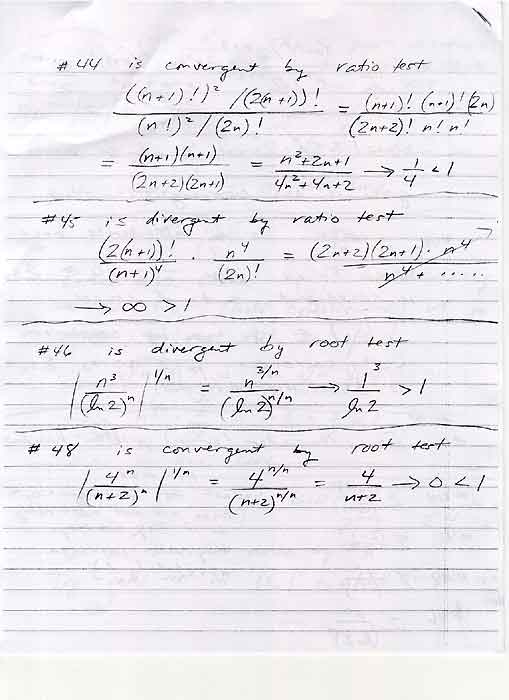 #44 is convergent by ratio test
((n+1)!)² /(2(n+1))! / (n!)² / (2n)! = (n+1)! (n+1)! (2n) / (2n+2)! n! n!
= (n+1)(n+1) / (2n+2)(2n+1) = n²+2n+1 / 4n²+4n+2 → 1/4 < 1
#45 is divergent by ratio test
(2(n+1))! / (n+1)⁴ · n⁴ / (2n)! = (2n+2)(2n+1) · n⁴ / n⁴ + .....
→ ∞ > 1
#46 is divergent by root test
| n³ / (ln 2)ⁿ |^1/n = n^3/n / (ln 2)^n/n → 1³ / ln 2 > 1
#48 is convergent by root test
| 4ⁿ / (n+2)ⁿ |^1/n = 4^n/n / (n+2)^n/n = 4 / n+2 → 0 < 1